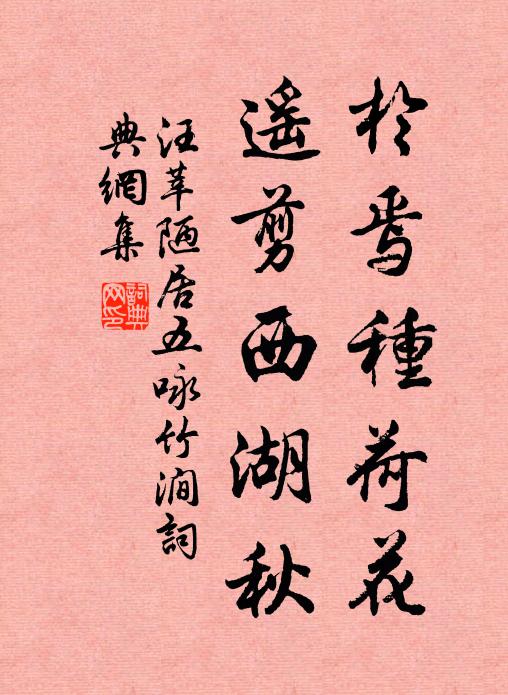 於焉種荷花
遥剪西湖秋
汪莘陋居五咏竹澗詞
典網集
詞典網印